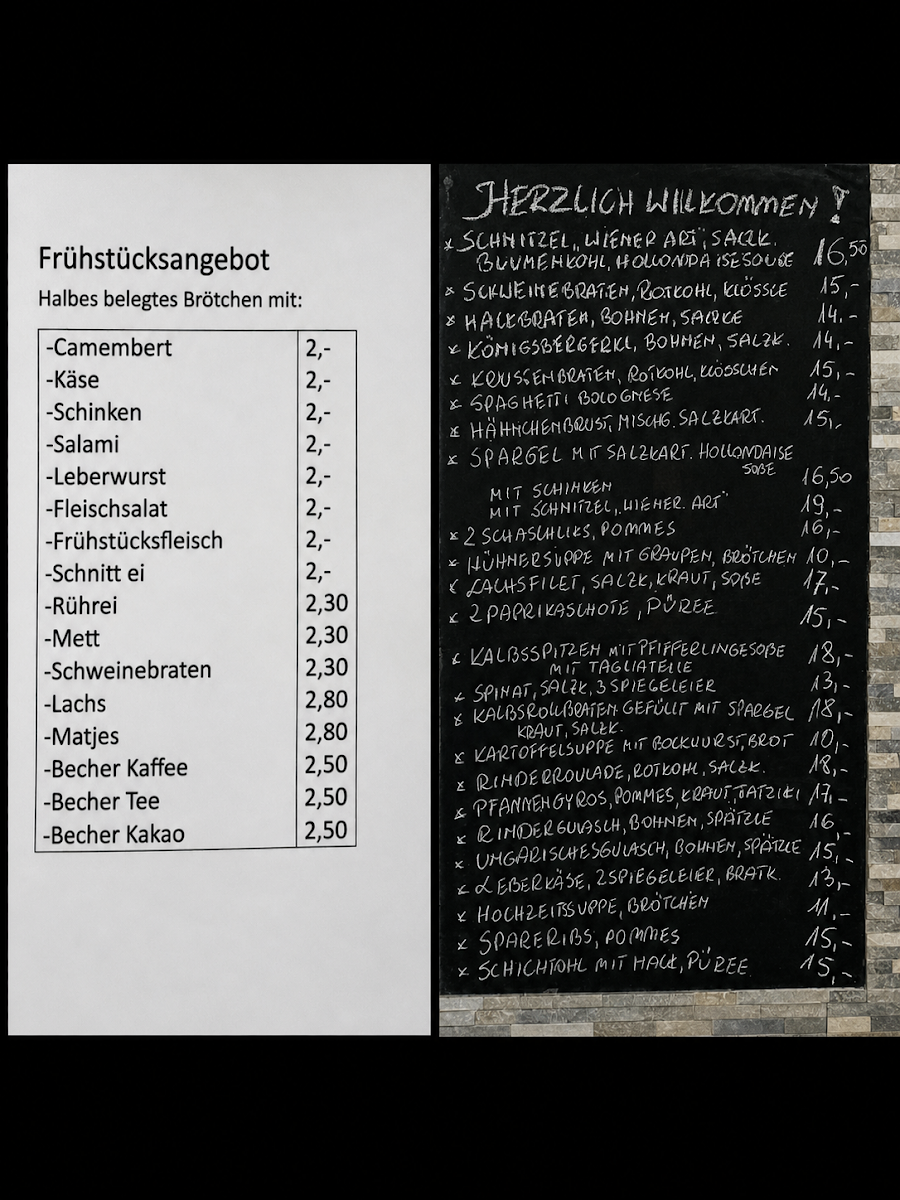 Frühstücksangebot
Halbes belegtes Brötchen mit:
-Camembert 2,-
-Käse 2,-
-Schinken 2,-
-Salami 2,-
-Leberwurst 2,-
-Fleischsalat 2,-
-Frühstücksfleisch 2,-
-Schnitt ei 2,-
-Rührei 2,30
-Mett 2,30
-Schweinebraten 2,30
-Lachs 2,80
-Matjes 2,80
-Becher Kaffee 2,50
-Becher Tee 2,50
-Becher Kakao 2,50
HERZLICH WILLKOMMEN !
* SCHNITZEL „WIENER ART", SALZK.
BLUMENKOHL, HOLLONDAISESOUßE 16,50
* SCHWEINEBRATEN, ROTKOHL, KLÖSSE 15,-
* HACKBRATEN, BOHNEN, SALZKE 14.-
* KÖNIGSBERGERKL, BOHNEN, SALZK. 14,-
* KRUSTENBRATEN, ROTKOHL, KLÖSSCHEN 15,-
* SPAGHETTI BOLOGNESE 14,-
* HÄHNCHENBRUST, MISCHG. SALZKART. 15,-
* SPARGEL MIT SALZKART. HOLLONDAISE
SOßE 16,50
MIT SCHINKEN
MIT SCHNITZEL „WIENER ART" 19,-
* 2 SCHASCHLIKS, POMMES 16,-
* HÜHNERSUPPE MIT GRAUPEN, BRÖTCHEN 10,-
* LACHSFILET, SALZK, KRAUT, SOßE 17,-
* 2 PAPRIKASCHOTE, PÜREE 15,-
* KALBSSPITZEN MIT PFIFFERLINGESOßE 18,-
MIT TAGLIATELLE
* SPINAT, SALZK, 3 SPIEGELEIER 13,-
* KALBSROLLBRATEN GEFÜLLT MIT SPARGEL 18,-
KRAUT, SALZK.
* KARTOFFELSUPPE MIT BOCKWURST, BROT 10,-
* RINDERROULADE, ROTKOHL, SALZK. 18,-
* PFANNENGYROS, POMMES, KRAUT, TATZIKI 17,-
* RINDERGULASCH, BOHNEN, SPÄTZLE 16,-
* UNGARISCHESGULASCH, BOHNEN, SPÄTZLE 15,-
* LEBERKÄSE, 2SPIEGELEIER, BRATK. 13,-
* HOCHZEITSSUPPE, BRÖTCHEN 11,-
* SPARERIBS, POMMES 15,-
* SCHICHTKOHL MIT HACK, PÜREE 15,-